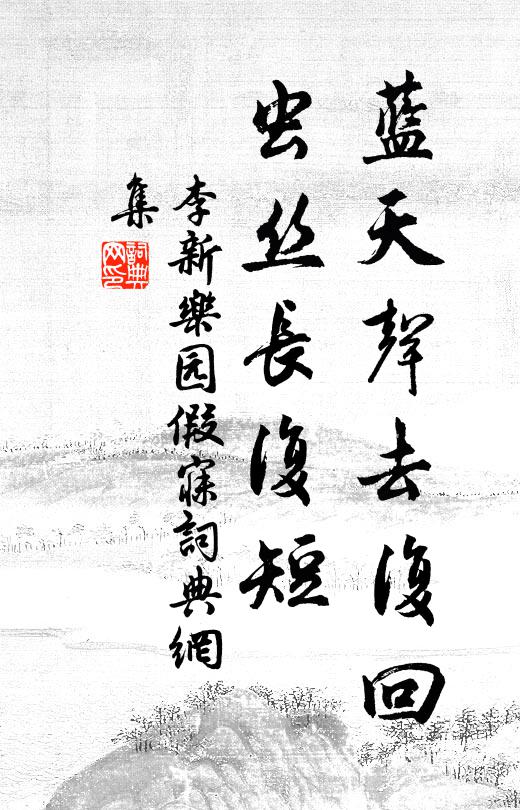 藍天聲去復回
虫丝長復短
李新樂园假寐詞典網
集
詞典网印